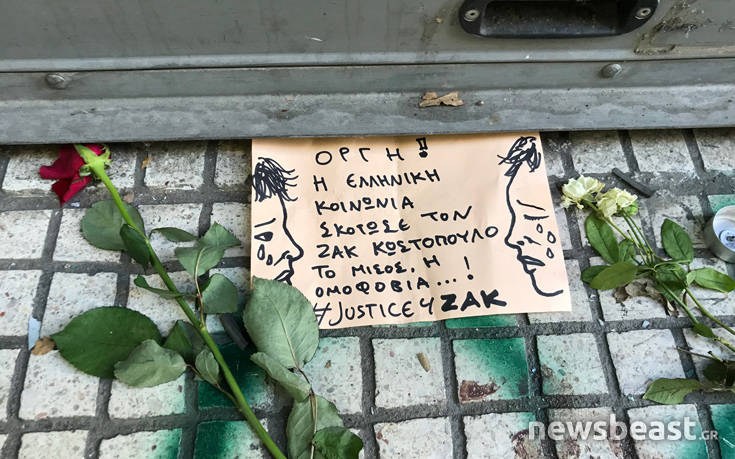 ΟΡΓΗ!
Η ΕΛΛΗΝΙΚΗ
ΚΟΙΝΩΝΙΑ
ΣΚΟΤΩΣΕ ΤΟΝ
ΖΑΚ ΚΩΣΤΟΠΟΥΛΟ
ΤΟ ΜΙΣΟΣ, Η
ΟΜΟΦΟΒΙΑ...!
#JUSTICE4ZAK
newsbeast.GR